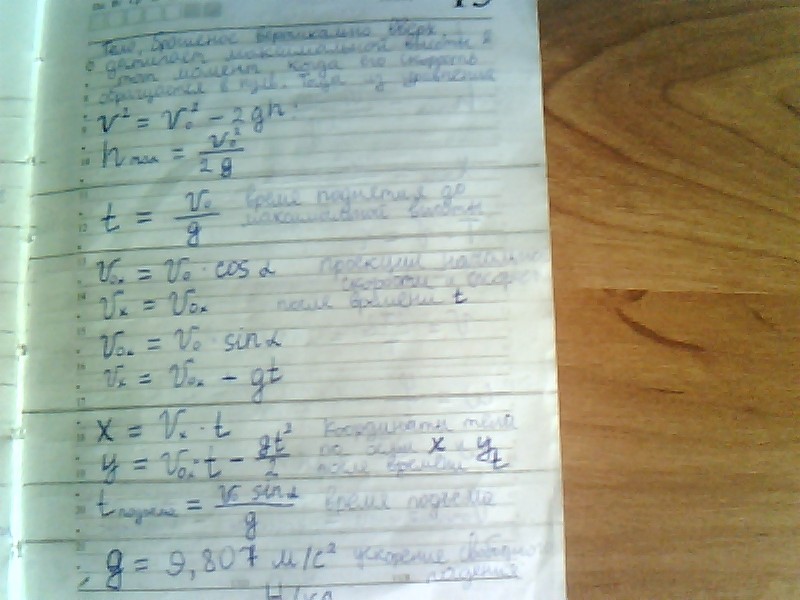 19
Тело, брошеное вертикально вверх,
достигает максимальной высоты в
тот момент когда его скорость
обращается в нуль. Тогда из уравнения
v² = v₀² - 2gh:
h max = v₀² / 2g
t = v₀ / g время поднятия до
максимальной высоты
v₀ₓ = v₀ · cos α проекции начальной
скорости и скорости
vₓ = v₀ₓ после времени t
v₀ₓ = v₀ · sin α
vₓ = v₀ₓ - gt
x = vₓ · t координаты тела
по осям x и y
y = v₀ₓ · t - gt² / 2 после времени t
t подъема = v₀ sin α / g время подъема
g = 9,807 м/с² ускорение свободного
падения
Н/кг